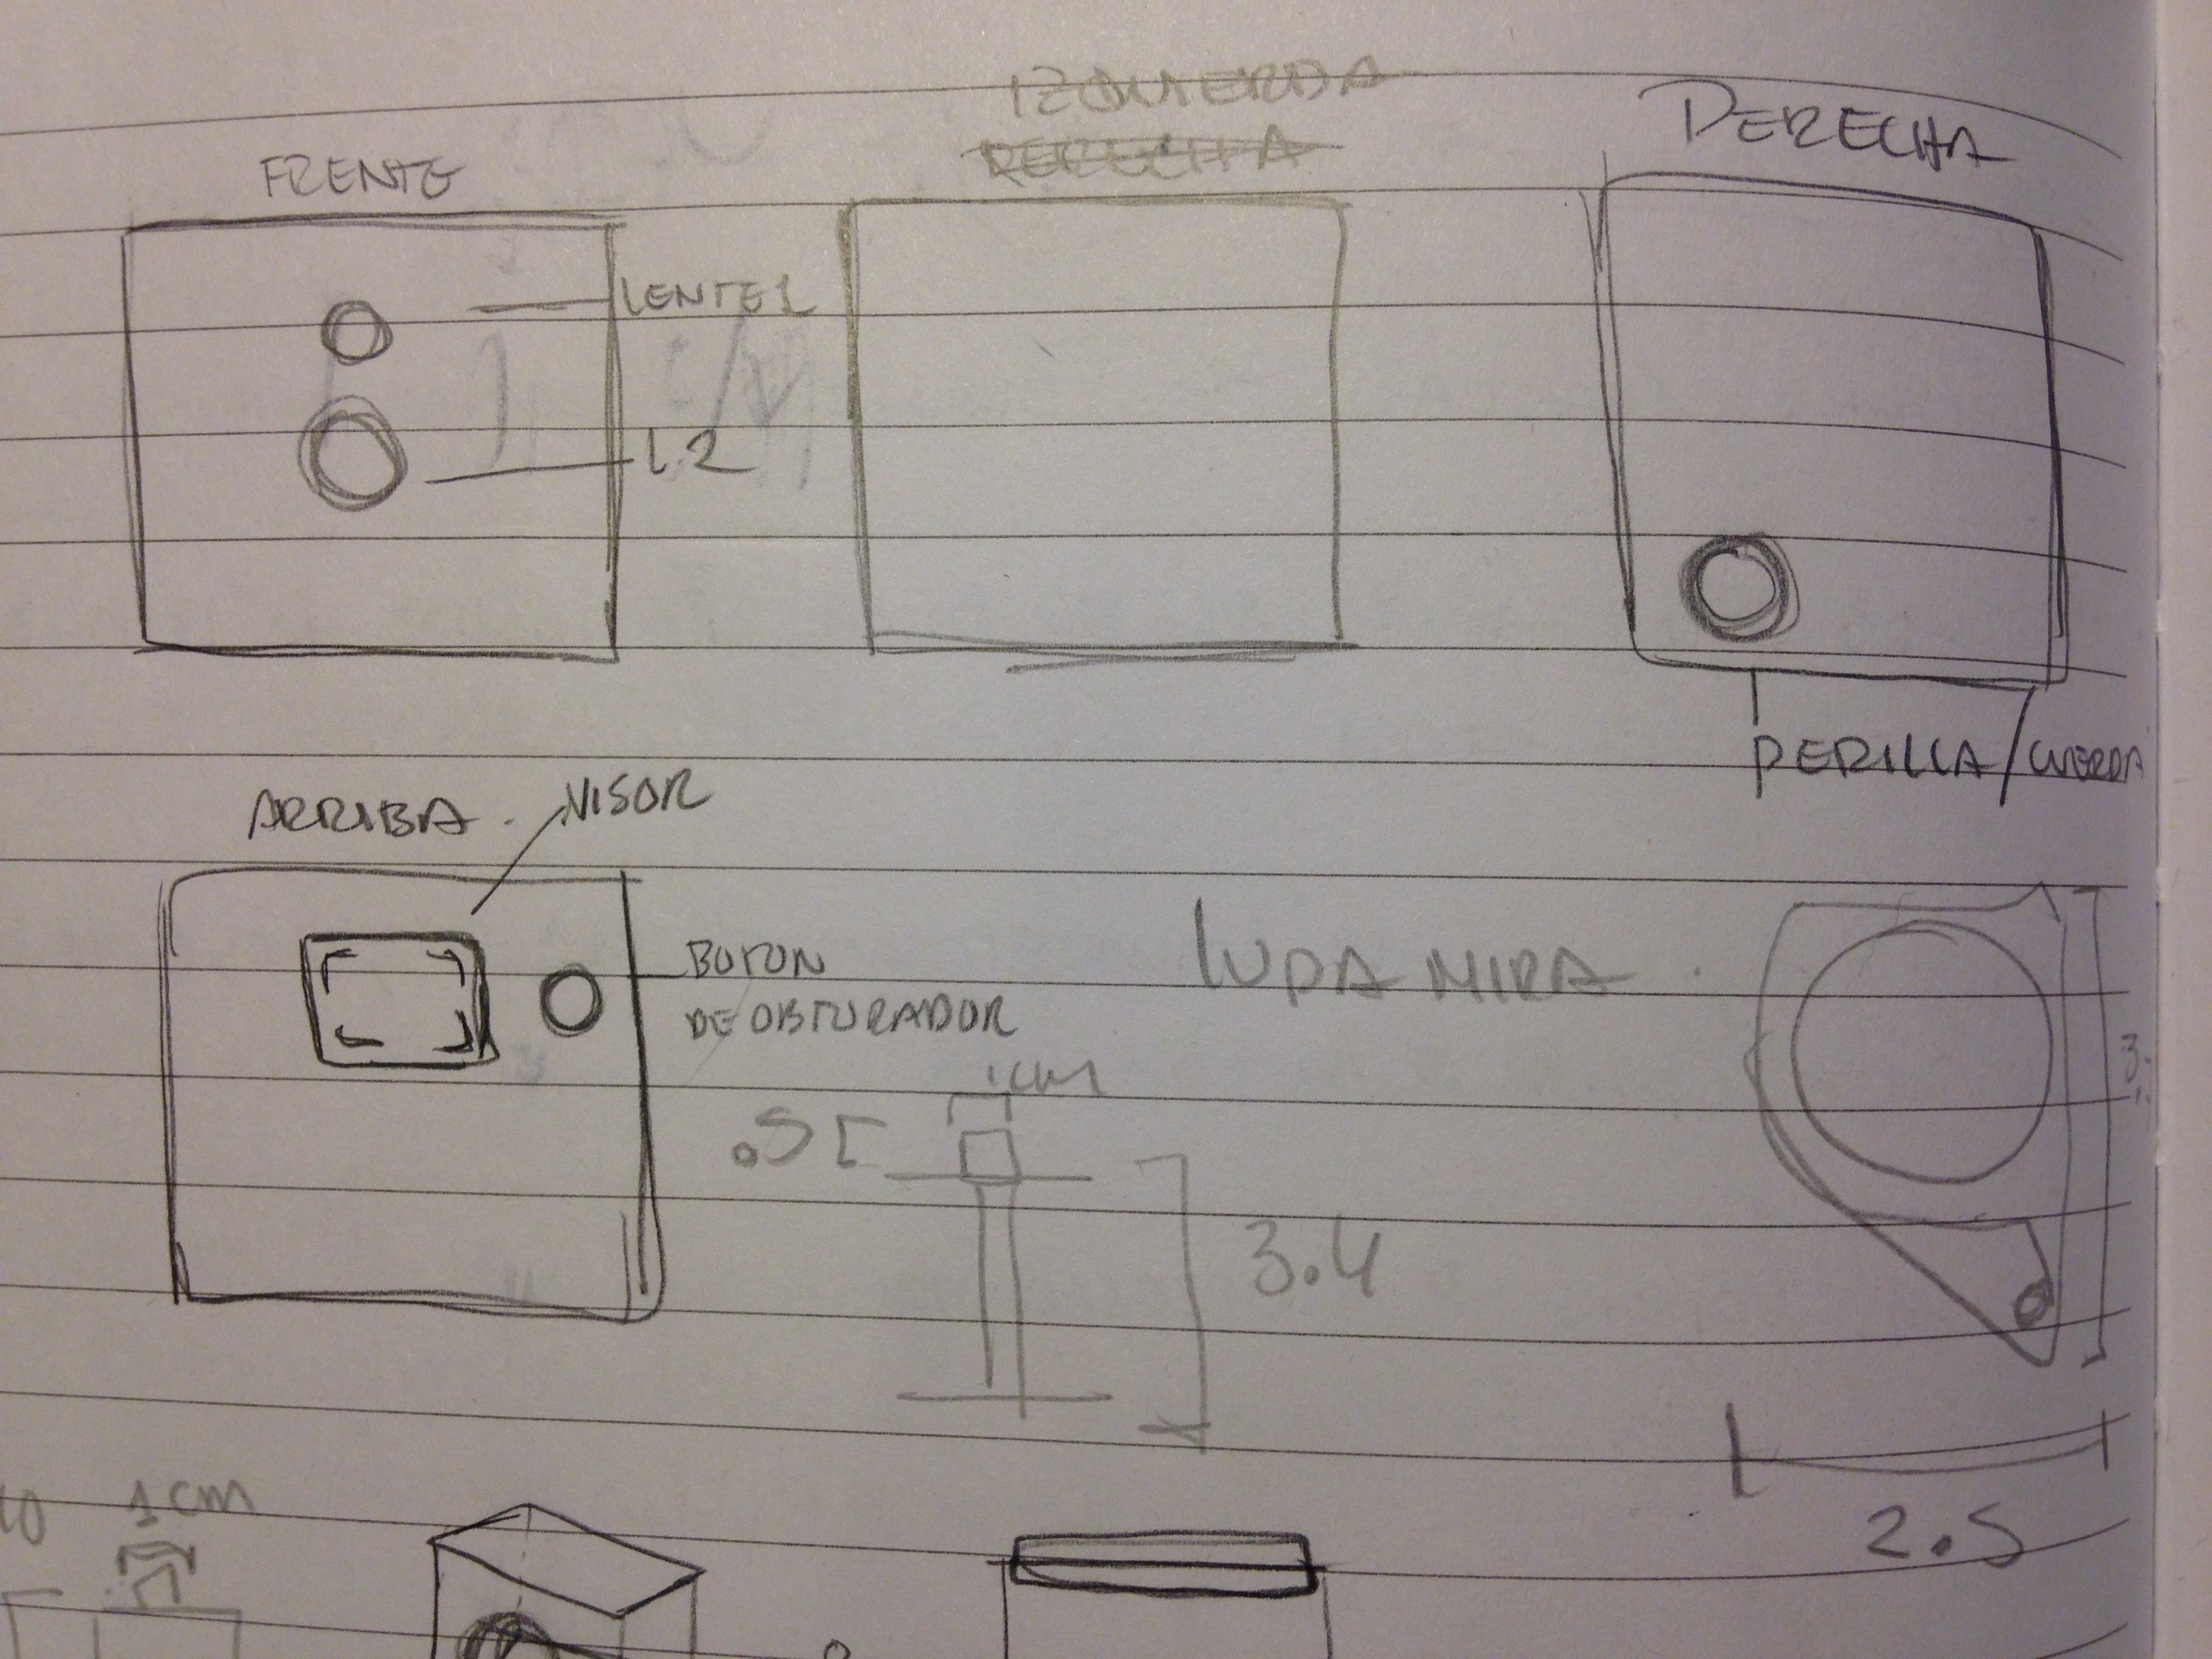 IZQUIERDA
DERECHA
FRENTE
DERECHA
LENTE 1
L2
PERILLA/CUERDA
ARRIBA.
VISOR
BOTON
DE OBTURADOR
LUPA MIRA.
1cm
.5
3.4
2.5
1cm